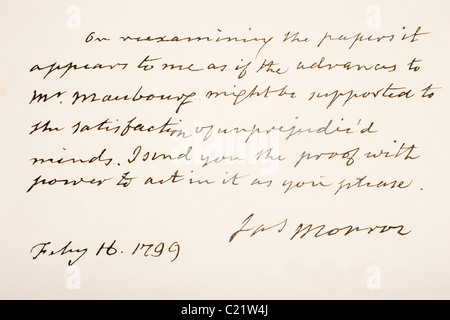 On reexamining the papers it
appears to me as if the advances to
Mr. Maubourg might be supported to
the satisfaction of unprejudic'd
minds. I send you the proof with
power to act in it as you please.
Jas Monroe
Feby 16. 1799
alamy
Image ID: C21W4J
www.alamy.com